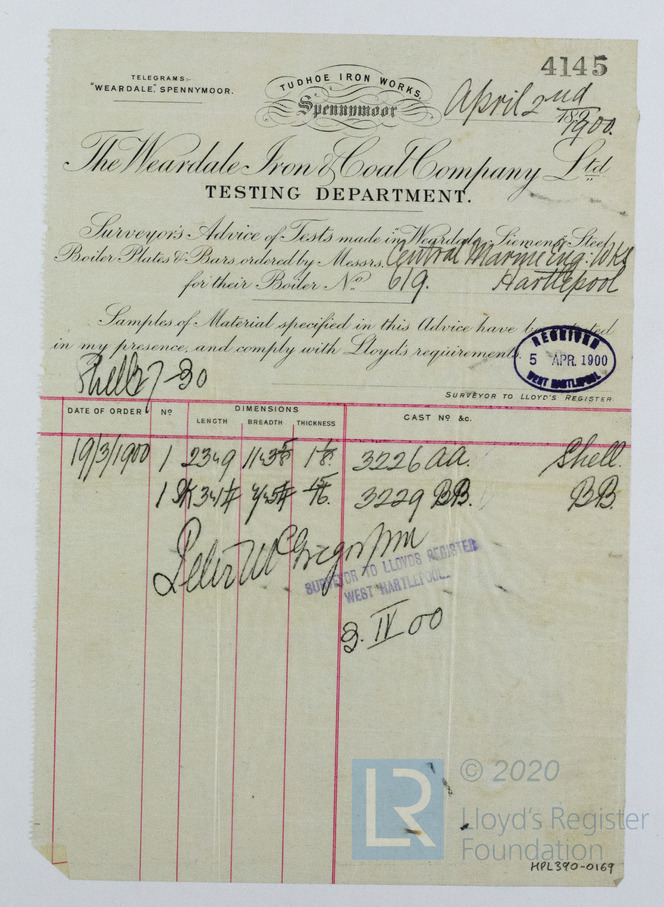 4145
TELEGRAMS:-
"WEARDALE," SPENNYMOOR.
TUDHOE IRON WORKS,
Spennymoor
April 2nd
1900.
The Weardale Iron & Coal Company Ltd
TESTING DEPARTMENT.
Surveyor's Advice of Tests made in Weardale-Siemens Steel
Boiler Plates & Bars ordered by Messrs. Central Marine Eng. Wks
for their Boiler No 619. Hartlepool
Samples of Material specified in this Advice have been tested
in my presence, and comply with Lloyd's requirements.
5 APR. 1900
WEST HARTLEPOOL
Shell 27-30
SURVEYOR TO LLOYD'S REGISTER.
DATE OF ORDER No DIMENSIONS CAST No &c.
LENGTH BREADTH THICKNESS
19/3/1900 1 3226 AA. Shell.
1 3229 BB. BB.
SURVEYOR TO LLOYDS REGISTER
WEST HARTLEPOOL
3. IV 00
LR
© 2020
Lloyd's Register
Foundation
HPL390-0169